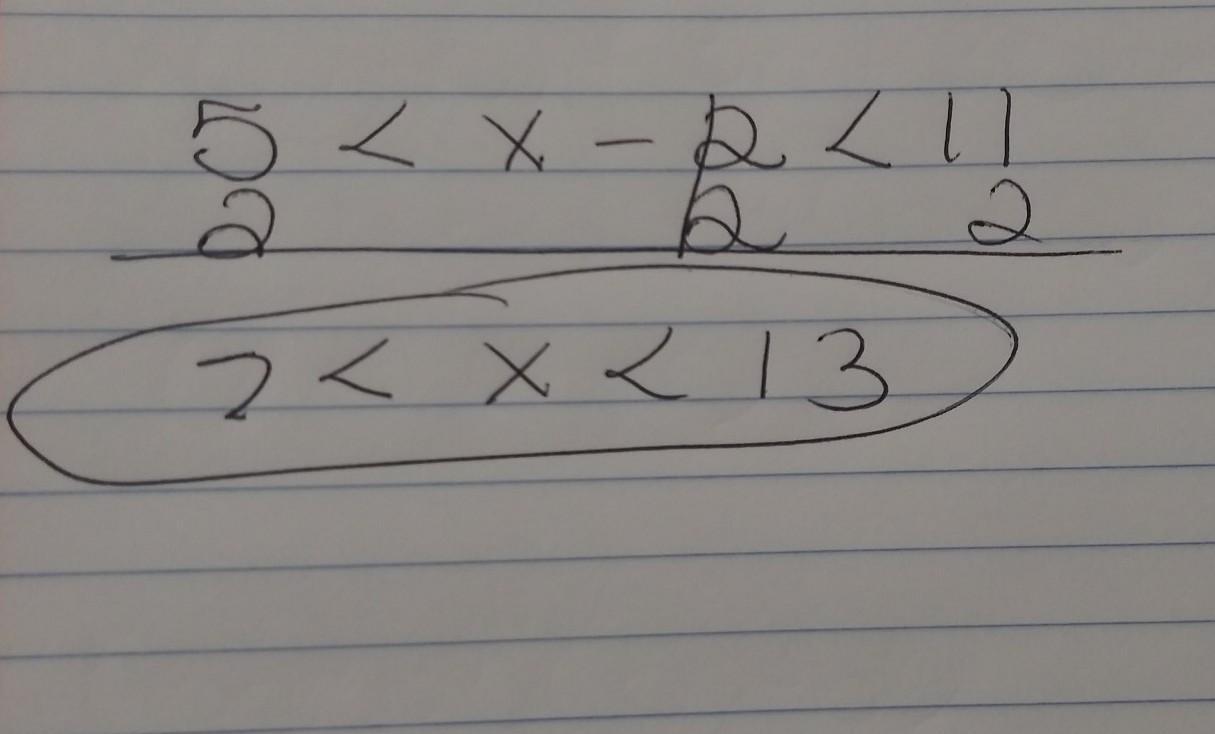 5 < x - 2 < 11
2 2 2
7 < x < 13